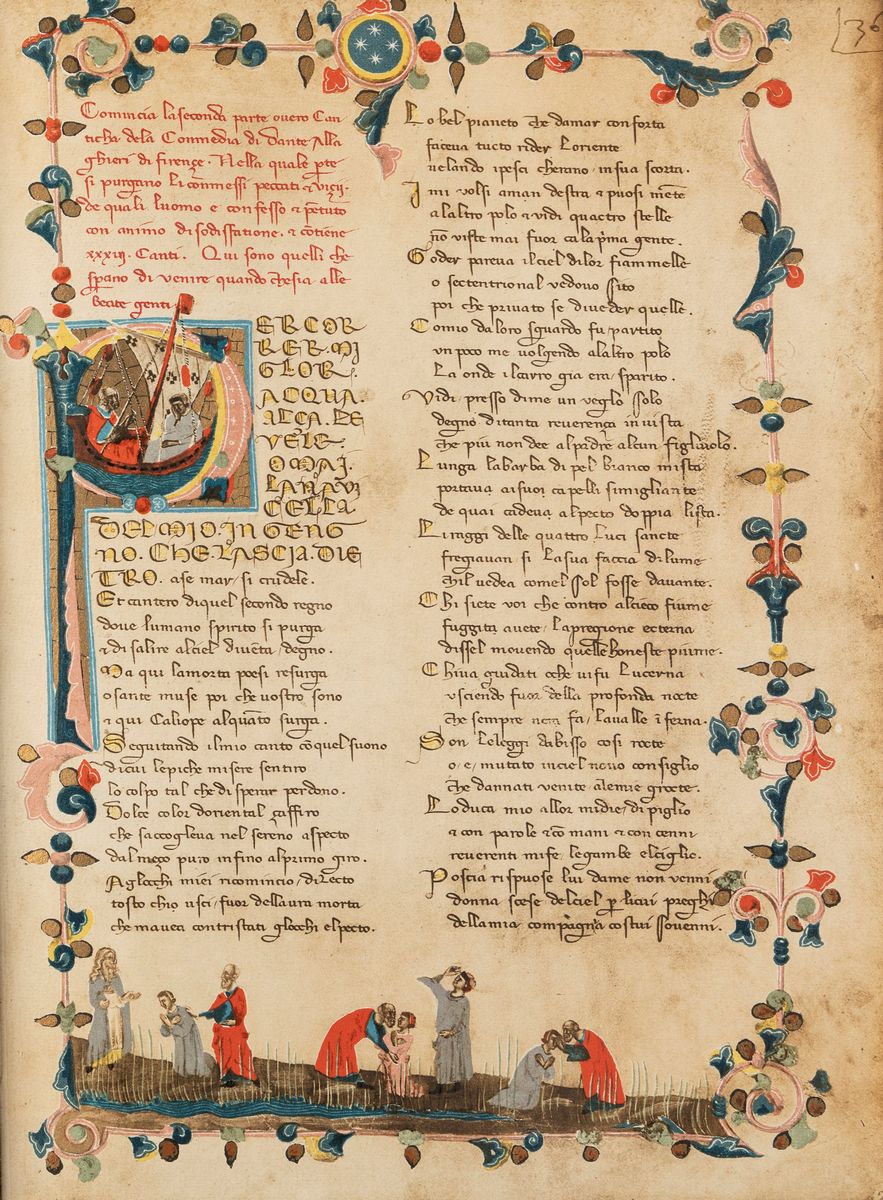 36
Comincia la seconda parte overo Can
ticha dela Commedia di Dante Alla
ghieri di firençe. Nella quale pte
si purgano li cōmessi peccati & viçij.
de quali luomo e confesso & pētuto
con animo di sodisfatione. & cōtiene
xxxiij. Canti. Qui sono quelli che
sperano di venire quando chesia alle
beate genti
PER COR
RER. MI
GLOR.
ACQUA.
ALÇA. LE
VELE.
OMAI.
LA NAVI
CELLA
DEL MIO. INGENG
NO. CHE. LASCIA. DIE
TRO. ase mar, si crudele.
Et cantero diquel secondo regno
dove lumano spirito si purga
& di salire alciel diventa, degno.
Ma qui lamorta poesi resurga
o sante muse poi che vostro sono
& qui Caliope alquāto surga.
Seguitando ilmio canto cō quel suono
di cui lepiche misere sentiro
lo colpo tal che disperar perdono.
Dolce color doriental çaffiro
che saccoglieva nel sereno aspecto
dal meço puro infino alprimo giro.
Aglocchi miei ricomincio, dilecto
tosto chio usci, fuor dellaura morta
che mavea contristati glocchi elpecto.
Lo bel pianeto che damar conforta
faceva tucto rider loriente
velando ipesci cherano, in sua scorta.
I mi volsi aman destra & puosi mēte
alaltro polo & vidi quactro stelle
nō viste mai fuor ca la pma gente.
Goder pareva ilciel dilor fiammelle
o sectentrional vedovo sito
poi che privato se diveder quelle.
Comio daloro sguardo fu partito
un poco me volgendo alaltro polo
La onde ilcarro gia era, sparito.
Vidi, presso dime un veglo solo
degno ditanta reverença in vista
che piu non dee alpadre alcun figluolo.
Lunga la barba di pel bianco mista
portava aisuoi capelli simigliante
de quai cadeva alpecto doppia lista.
Li raggi delle quattro luci sancte
fregiavan si lasua faccia dilume
chil vedea comel sol fosse davante.
Chi siete voi che contro alcieco fiume
fuggita avete, lapregione ecterna
dissel movendo quelle honeste piume.
Chiva guidati o che vifu lucerna
uscendo fuor della profonda nocte
che sempre nera fa, lavalle īferna.
Son leleggi dabisso cosi rocte
o, e, mutato inciel novo consiglio
che dannati venite alemie grocte.
Loduca mio allor midie, dipiglio
& con parole & cō mani & con cenni
reverenti mife, legambe elciglio.
Poscia rispuose lui dame non venni
donna scese delciel p licui preghi
dellamia compagna costui sovenni.